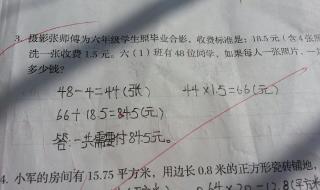 3. 摄影张师傅为六年级学生照毕业合影，收费标准是：18.5元（含4张照
洗一张收费1.5元。六（1）班有48位同学，如果每人一张照片，一
多少钱？
48-4=44(张) 44×1.5=66(元)
66+18.5=84.5(元)
答:一共需要付84.5元。
4. 小军的房间有15.75平方米，用边长0.8米的正方形瓷砖铺地，